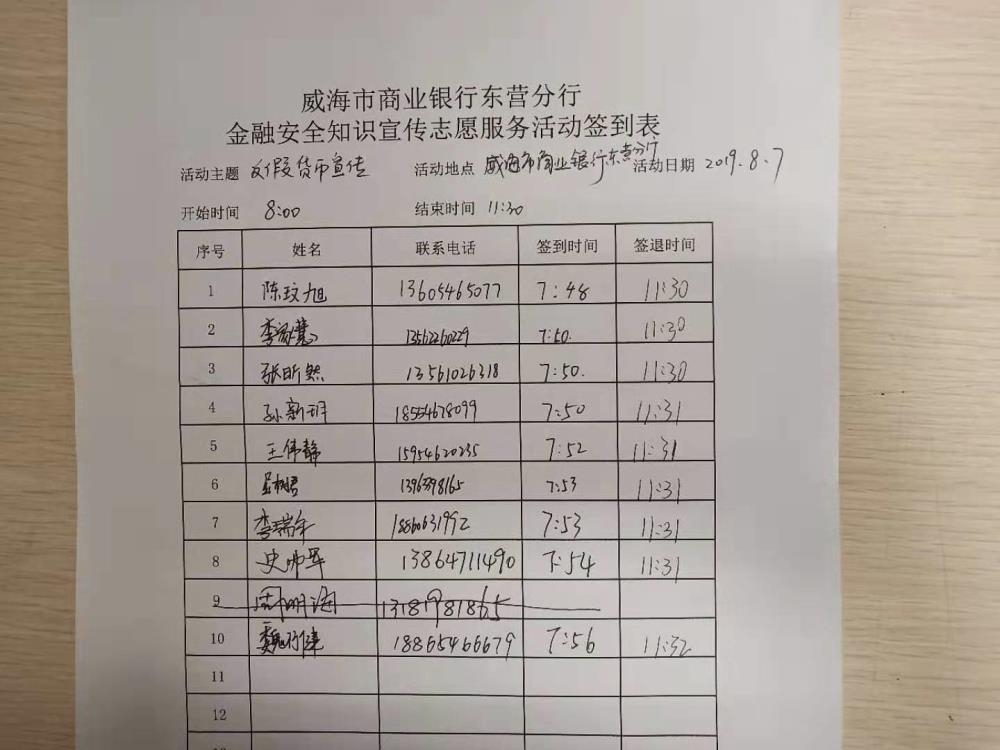 威海市商业银行东营分行
金融安全知识宣传志愿服务活动签到表
活动主题 反假货币宣传 活动地点 威海市商业银行东营分行 活动日期 2019.8.7
开始时间 8:00 结束时间 11:30
序号 姓名 联系电话 签到时间 签退时间
1 陈玟旭 13605465077 7:48 11:30
2 13562260229 7:50. 11:30
3 张昕然 13561026318 7:50. 11:30
4 孙新玥 18554678099 7:50 11:31
5 王伟静 15954620235 7:52 11:31
6 13963398165 7:53 11:31
7 李瑞年 18860631992 7:53 11:31
8 史帅军 13864711490 7:54 11:31
9 周明海 13181981865
10 魏行健 18865466679 7:56 11:32
11
12